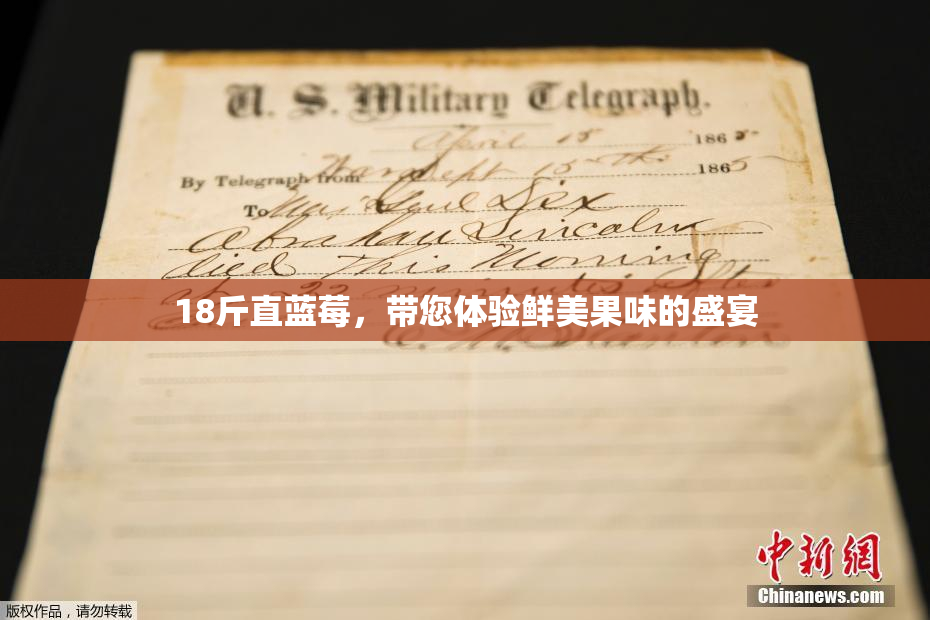 U. S. Military Telegraph.
April 15 1865
By Telegraph from War Dept 15th 1865
To Maj Genl Dix
Abraham Lincoln
died This Morning
at 22 minutes after
18斤直蓝莓，带您体验鲜美果味的盛宴
E. M. Stanton
中新网
Chinanews.com
版权作品，请勿转载